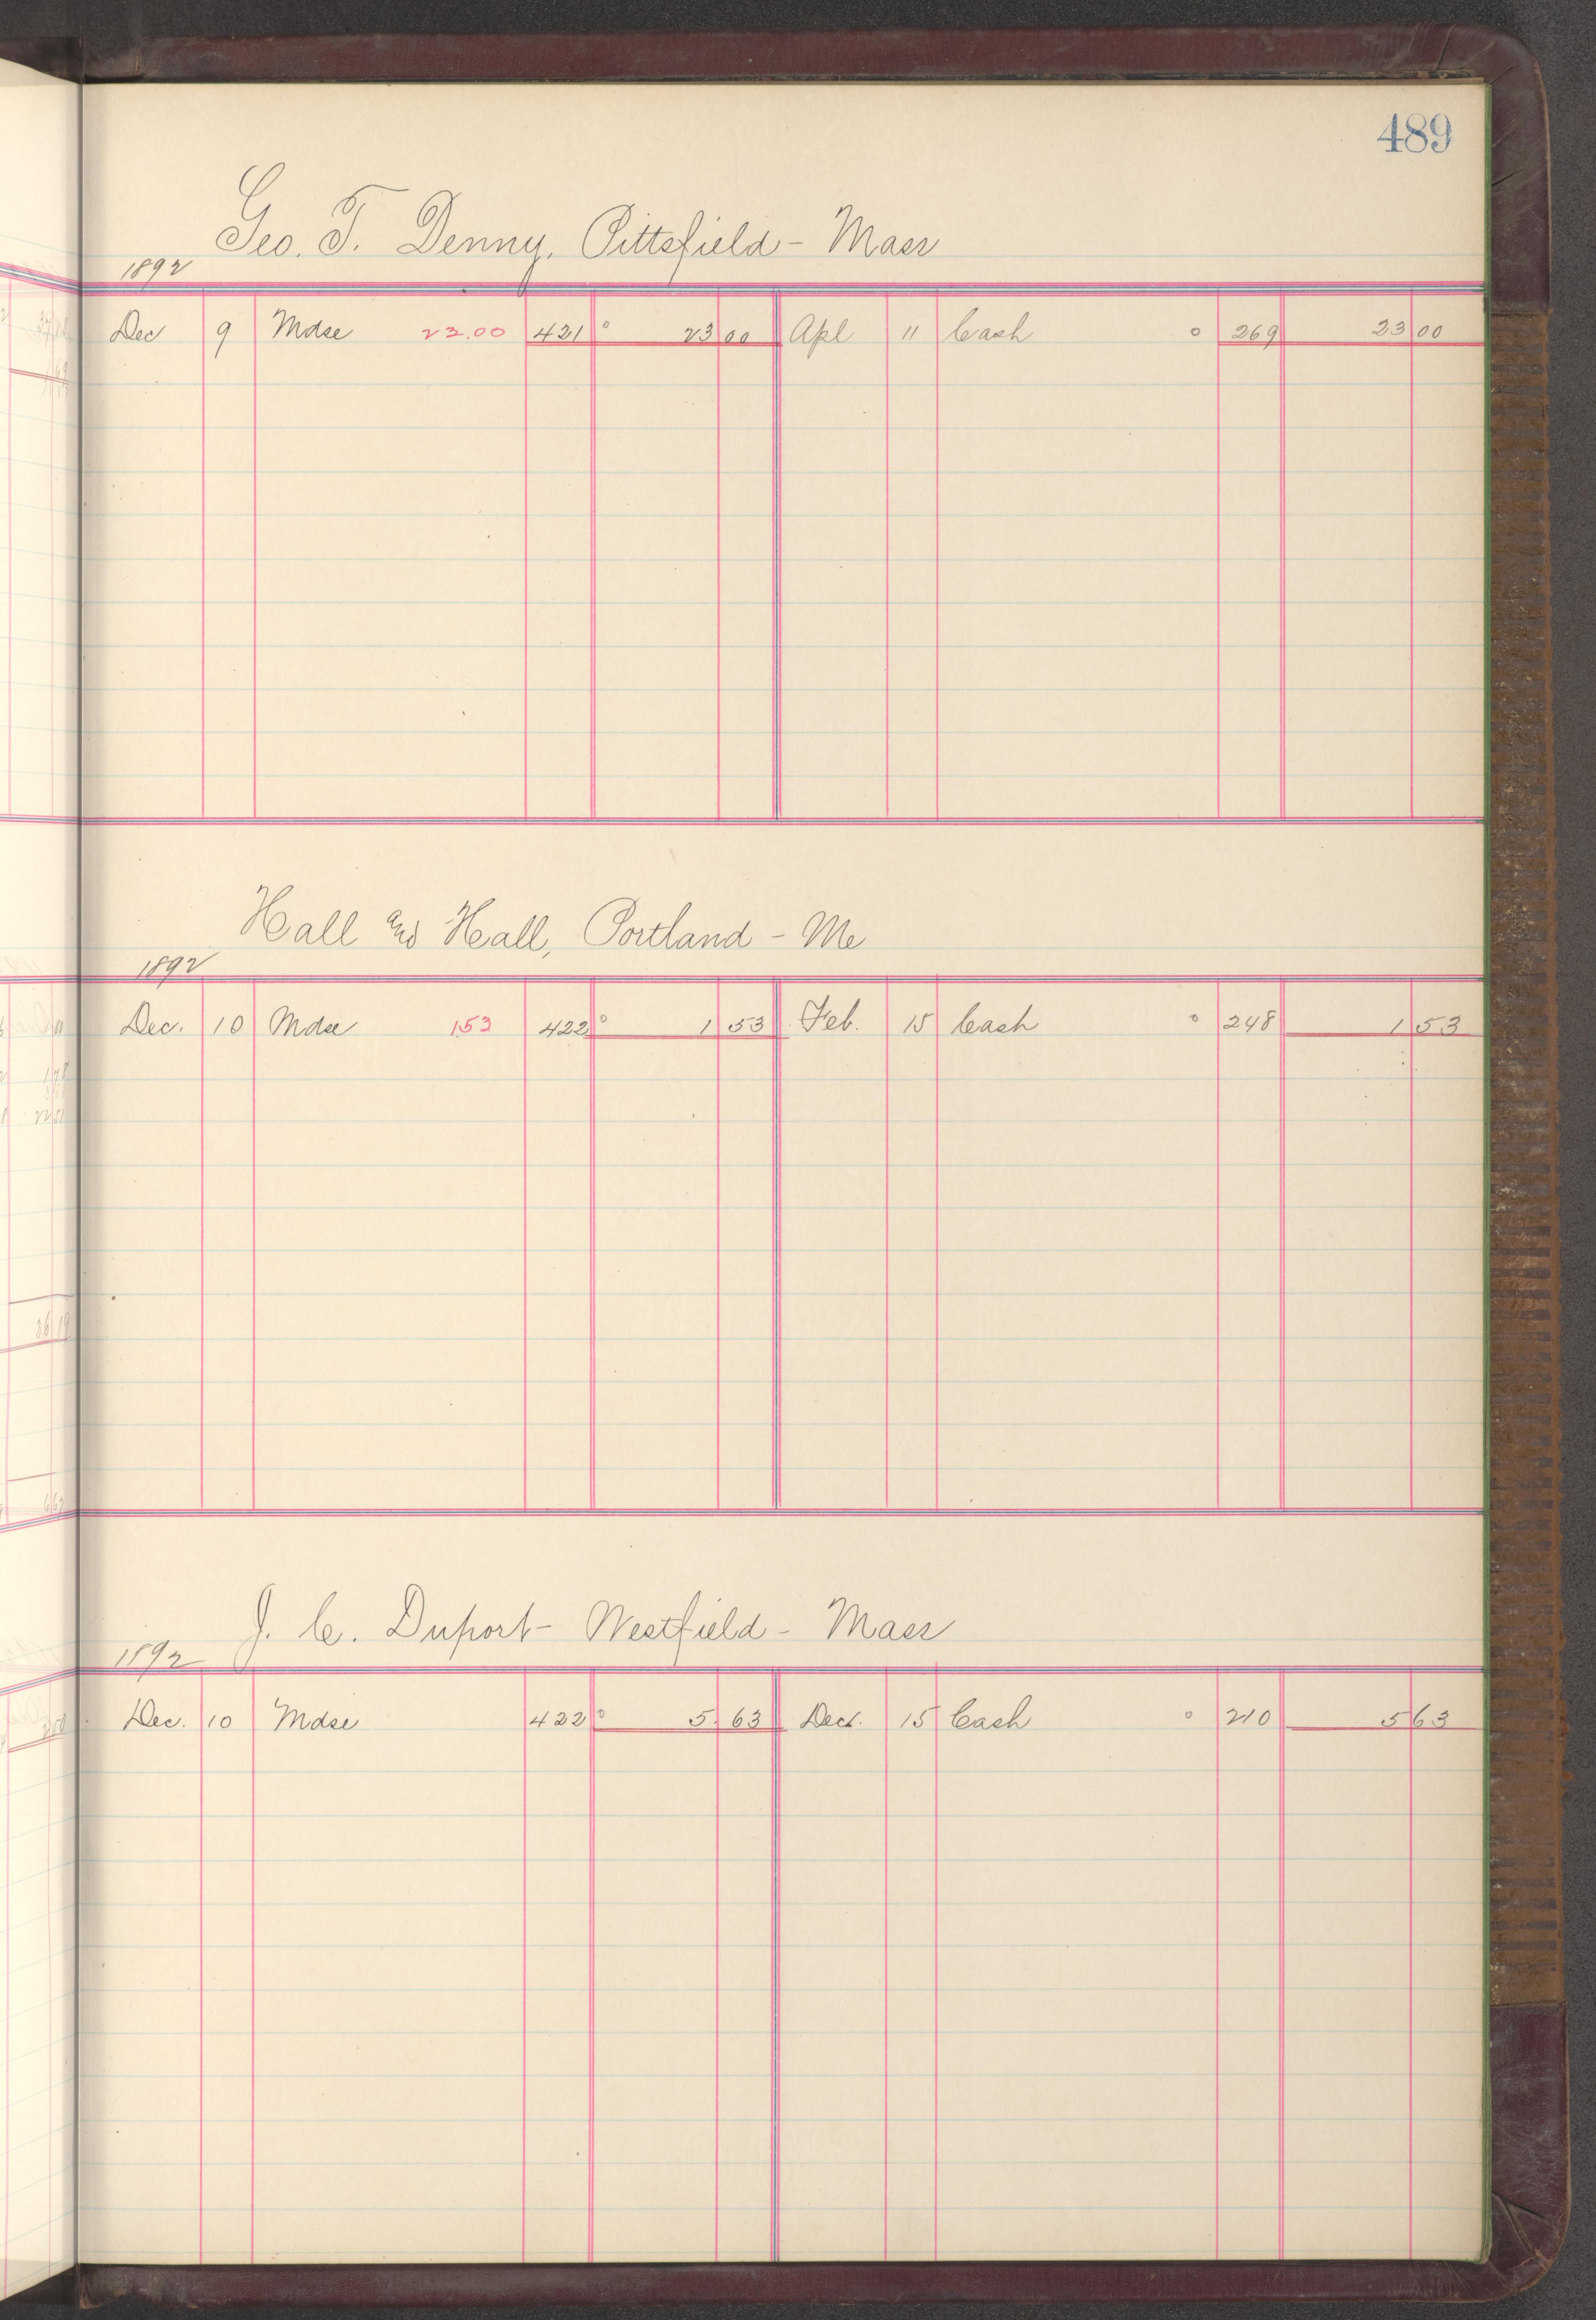 489
Geo. T. Denny, Pittsfield - Mass
1892
Dec 9 Mdse 23.00 421 ° 23 00 Apl 11 Cash ° 269 23 00
Hall and Hall, Portland - Me
1892
Dec. 10 Mdse 1.53 422 ° 1 53 Feb. 15 Cash ° 248 1 53
J. C. Duport - Westfield - Mass
1892
Dec. 10 Mdse 422 ° 5 63 Dec. 15 Cash ° 210 5 63